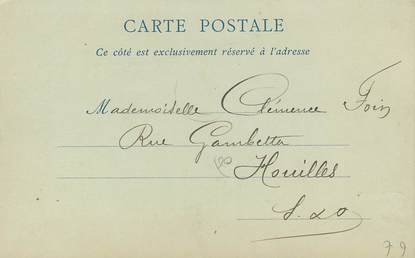 CARTE POSTALE
Ce côté est exclusivement réservé à l'adresse
Mademoiselle Clémence Foin
Rue Gambetta
Houilles
S. &O
79